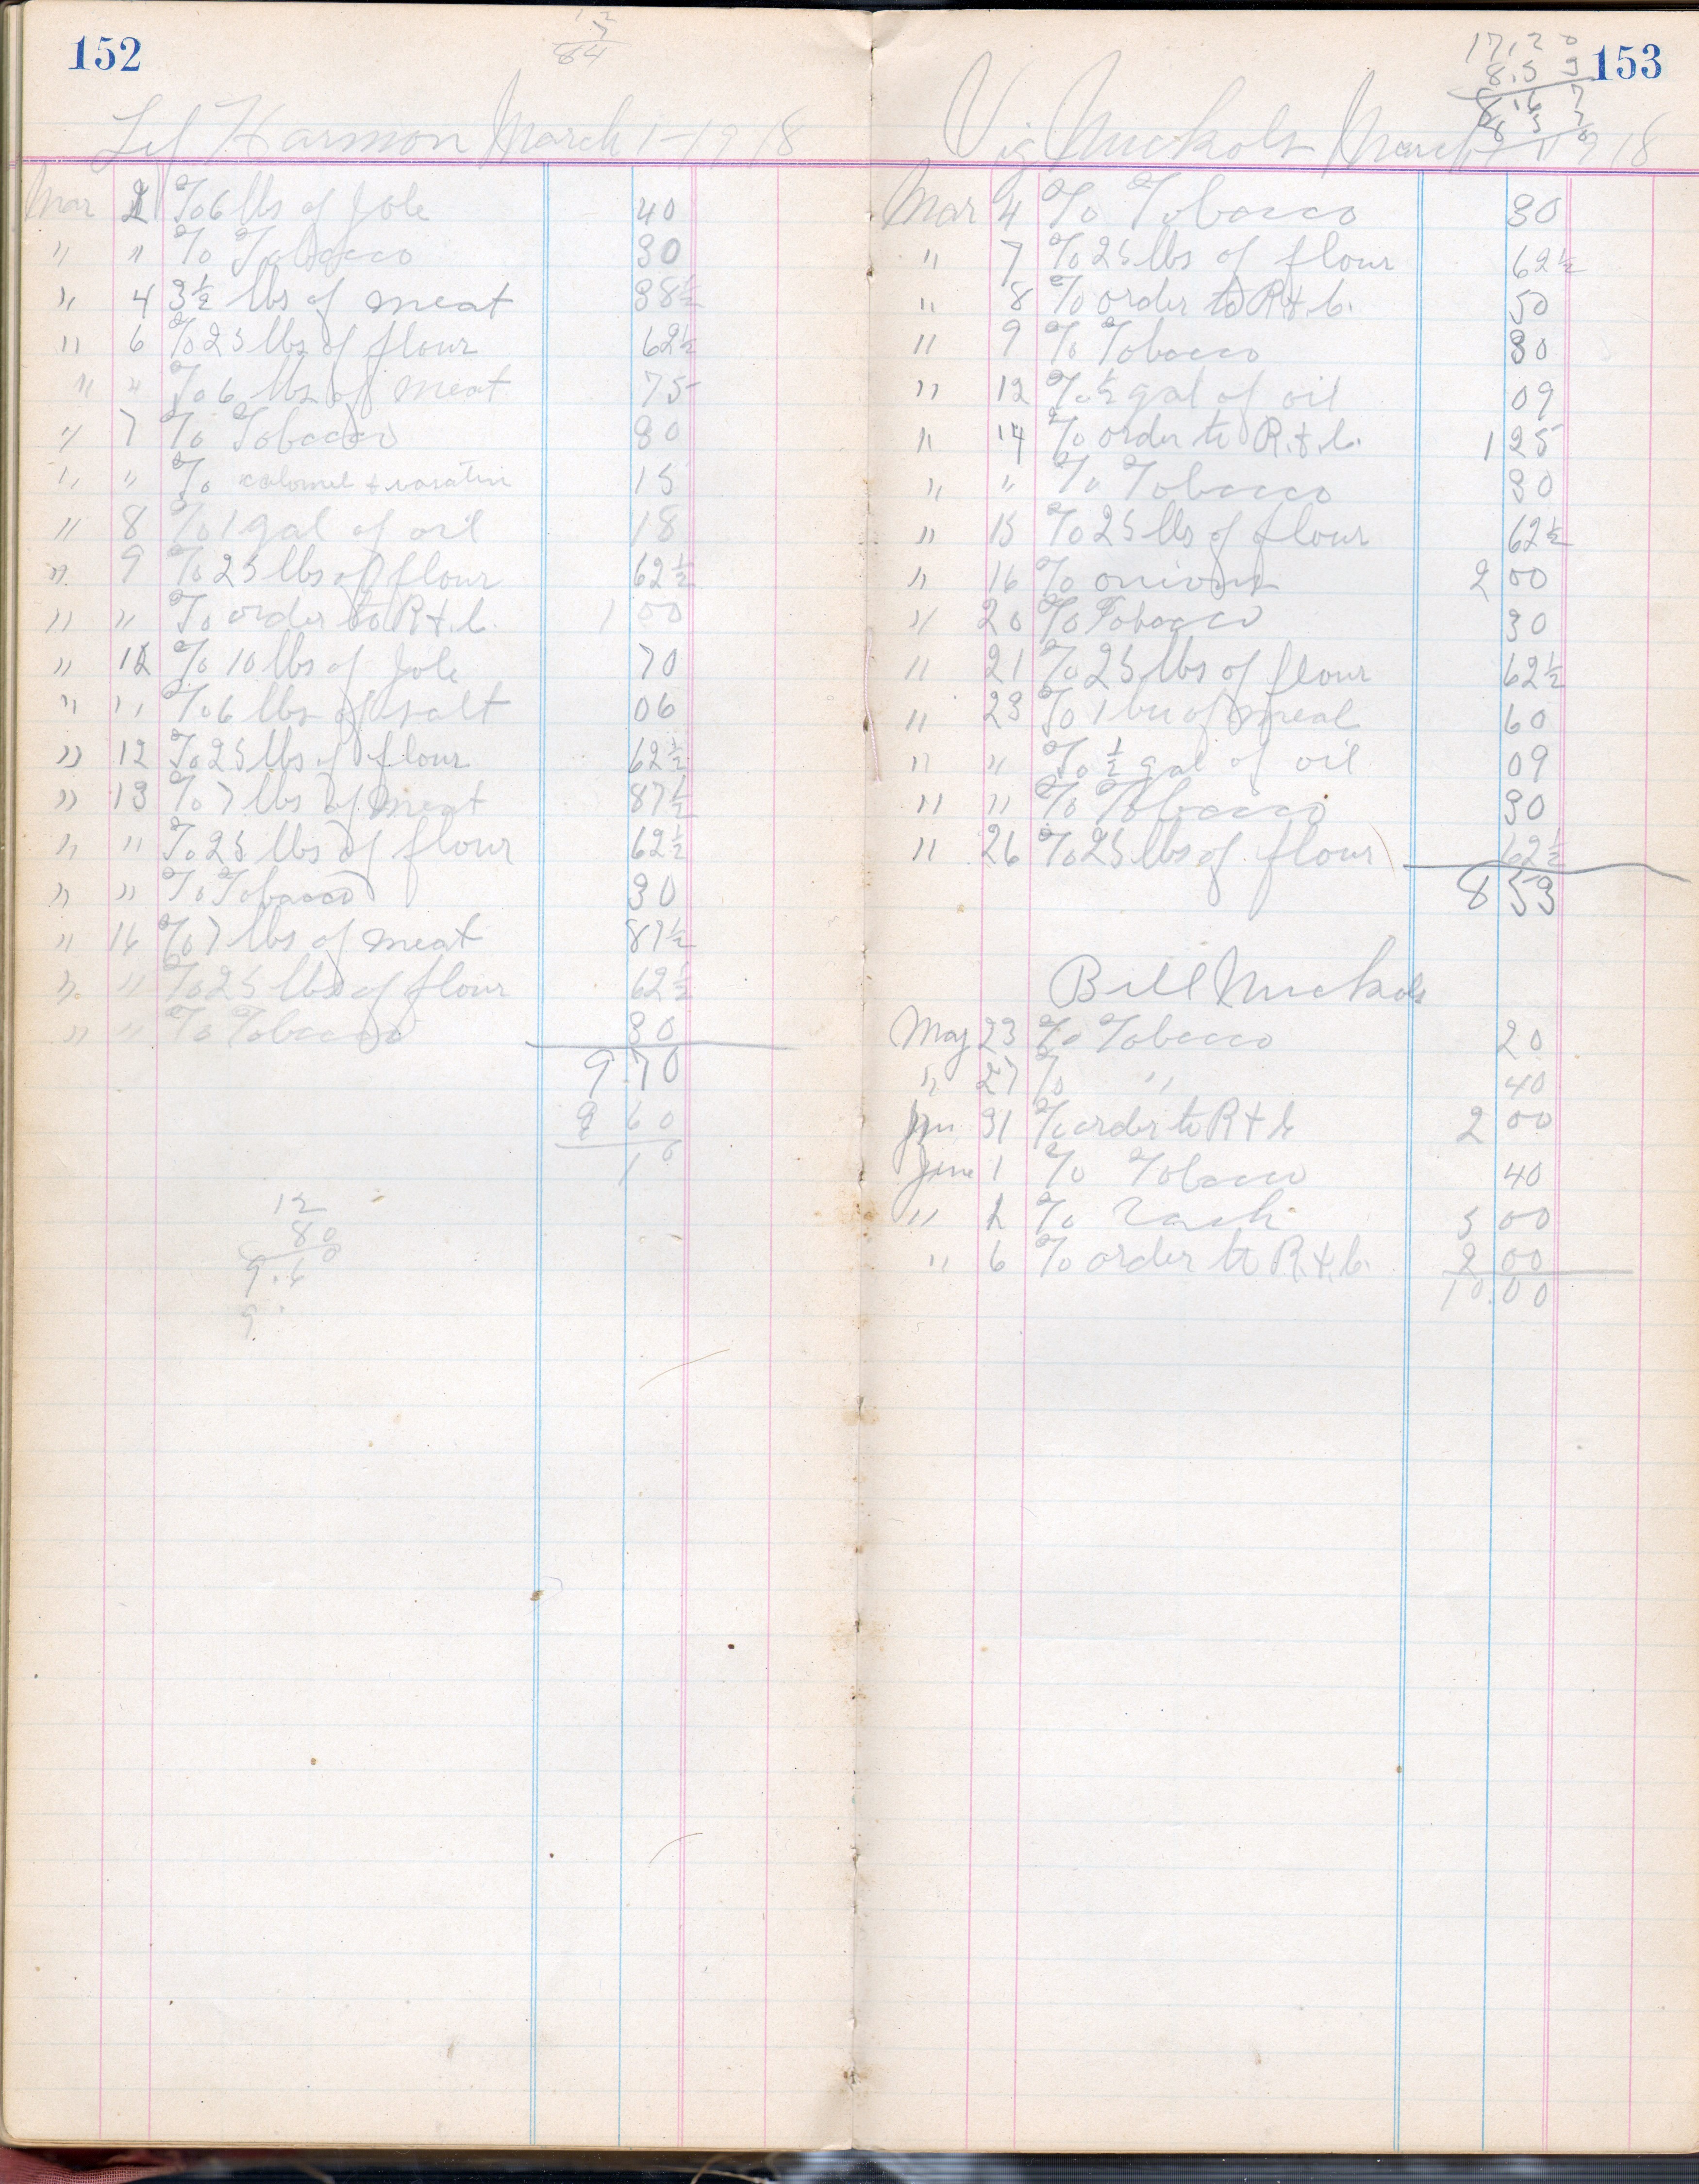 152
12
7
84
Lel Harmon March 1-1918
Mar 2 To 6 lbs of Jole 40
" " To Tobacco 30
" 4 3½ lbs of meat 38½
" 6 To 25 lbs of flour 62½
" " To 6 lbs of meat 75
" 7 To Tobacco 30
" " To calomel & 15
" 8 To 1 gal of oil 18
" 9 To 25 lbs of flour 62½
" " To order to R & C. 1 00
" 12 To 10 lbs of Jole 70
" " To 6 lbs of salt 06
" 12 To 25 lbs of flour 62½
" 13 To 7 lbs of meat 87½
" " To 25 lbs of flour 62½
" " To Tobacco 30
" 16 To 7 lbs of meat 87½
" " To 25 lbs of flour 62½
" " To Tobacco 30
9.70
9 60
10
12
80
9.60
9.
153
17.20
8.53
8.67
Vig Nuckols March 1918
Mar 4 To Tobacco 30
" 7 To 25 lbs of flour 62½
" 8 To order to R & C. 50
" 9 To Tobacco 30
" 12 To ½ gal of oil 09
" 14 To order to R. & C. 1 25
" " To Tobacco 30
" 15 To 25 lbs of flour 62½
" 16 To onions 2 00
" 20 To Tobacco 30
" 21 To 25 lbs of flour 62½
" 23 To 1 bu of meal 60
" " To ½ gal of oil 09
" " To Tobacco 30
" 26 To 25 lbs of flour 62½
8 53
Bill Nuckols
May 23 To Tobacco 20
" 27 To " 40
31 To order to R & C 2 00
June 1 To Tobacco 40
" 2 To Cash 5 00
" 6 To order to R. & C. 2 00
10.00